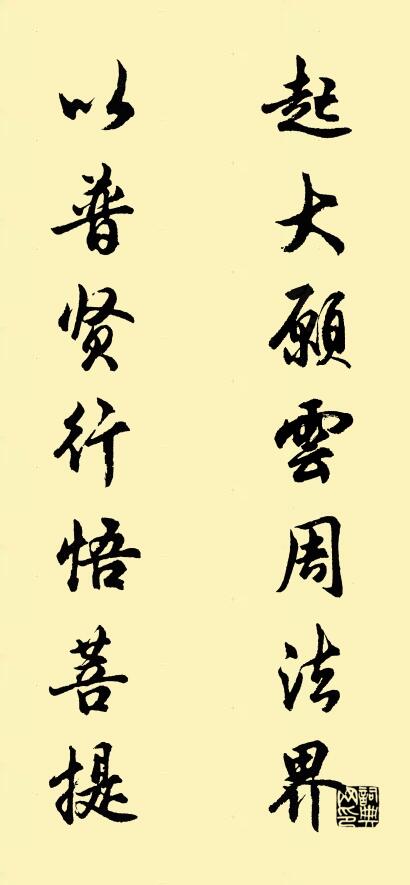 起大願雲周法界
以普贤行悟菩提